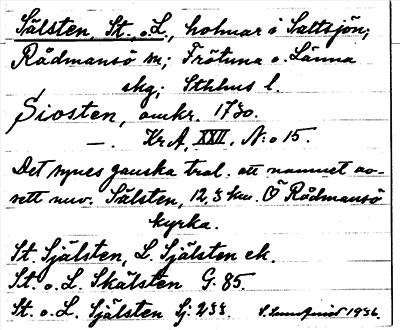 Sälsten, St. o. L., holmar i Saltsjön;
Rådmansö sn; Frötuna o. Länna
skg; Sthlms l.
Siosten, omkr. 1730.
— . Kr A, XXII, N:o 15.
Det synes ganska trol. att namnet av-
sett nuv. Sälsten, 12,3 km. Ö Rådmansö
kyrka.
St. Själsten, L. Själsten ek.
St. o. L. Skälsten G. 85.
St. o. L. Själsten Sj. 233. 1936.